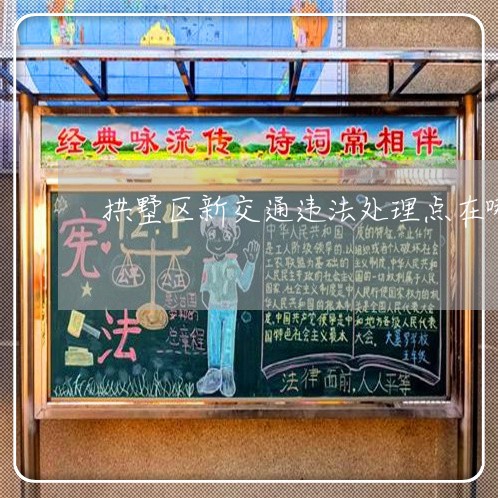 经典咏流传 诗词常相伴
拱墅区新交通违法处理点在
12.4
宪
法
公平
公正
总章程
中华人民共和国
是工人阶级领导的,以
工农联盟为基础的
人民民主专政的社会主义
国家。社会主义制度是中
华人民共和国的根本制
度。中国共产党领导是中
国特色社会主义最本
质的特征。禁止任何
组织或者个人破坏社会
主义制度。中华人民共和
国的一切权利属于人民。
人民行使国家权力的机
关是全国人民代表大会
和地方各级人民代表
大会。
学校
五年级
法律面前,人人平等